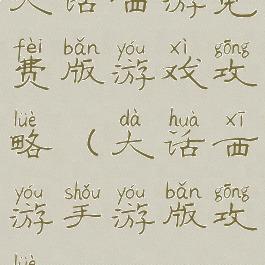 大话西游免
fèi bǎn yóu xì gōng
费版游戏攻
lüè dà huà xī
略（大话西
yóu shǒu yóu bǎn gōng
游手游版攻
lüè